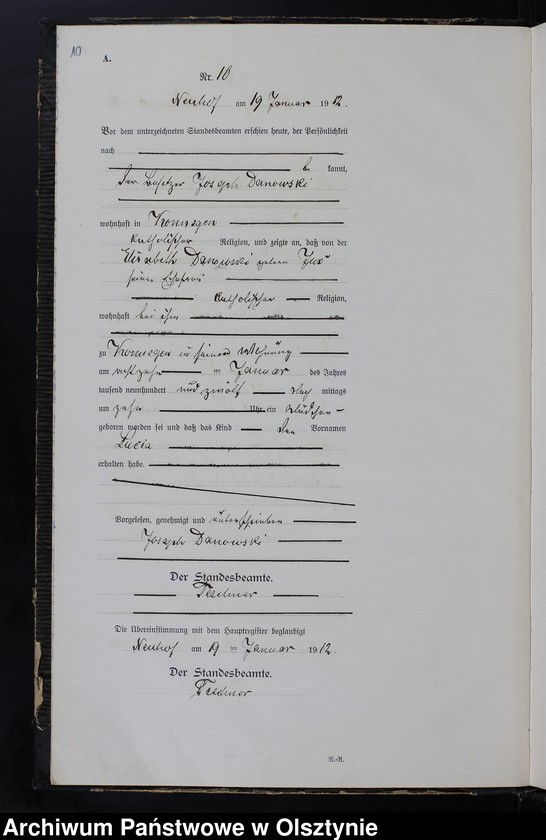 10
A.
Nr. 10
Neuhof am 19 Januar 1912.
Vor dem unterzeichneten Standesbeamten erschien heute, der Persönlichkeit
nach
be kannt,
der Besitzer Joseph Danowski
wohnhaft in
katholischer Religion, und zeigte an, daß von der
Elisabeth Danowski geborn
seiner Ehefrau
katholischer Religion,
wohnhaft bei ihm
zu in seiner Wohnung
am achtzehn ten Januar des Jahres
tausend neunhundert und zwölf Nach mittags
um zehn Uhr ein Mädchen
geboren worden sei und daß das Kind den Vornamen
Lucia
erhalten habe.
Vorgelesen, genehmigt und unterschrieben
Joseph Danowski
Der Standesbeamte.
Teschner
Die Übereinstimmung mit dem Hauptregister beglaubigt
Neuhof am 19 ten Januar 1912.
Der Standesbeamte.
Teschner
N.-R.
Archiwum Państwowe w Olsztynie